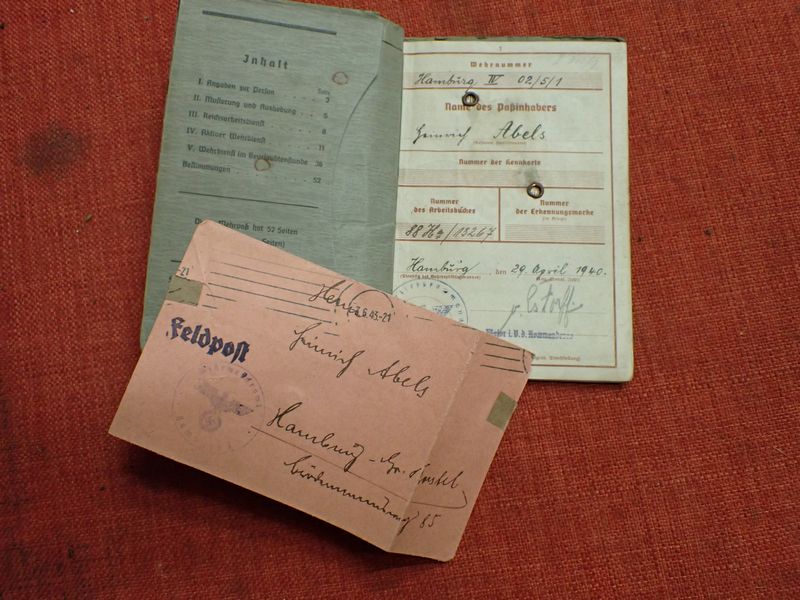 Inhalt
Seite
I. Angaben zur Person . . . 3
II. Musterung und Aushebung . 5
III. Reichsarbeitsdienst . . . 8
IV. Aktiver Wehrdienst . . . 11
V. Wehrdienst im Beurlaubtenstande 36
Bestimmungen . . . 52
Wehrpaß hat 52 Seiten
Seiten)
1
Wehrnummer
Hamburg IV 02/5/1
Name des Paßinhabers
Heinrich Abels
Nummer der Kennkarte
Nummer
des Arbeitsbuches
Nummer
der Erkennungsmarke
88 Hz/13267
Hamburg, den 29. April 1940.
Major i.V.d. Kommandeurs
-21
6.43-21
Feldpost
Herrn
Heinrich Abels
Hamburg - Gr.
85